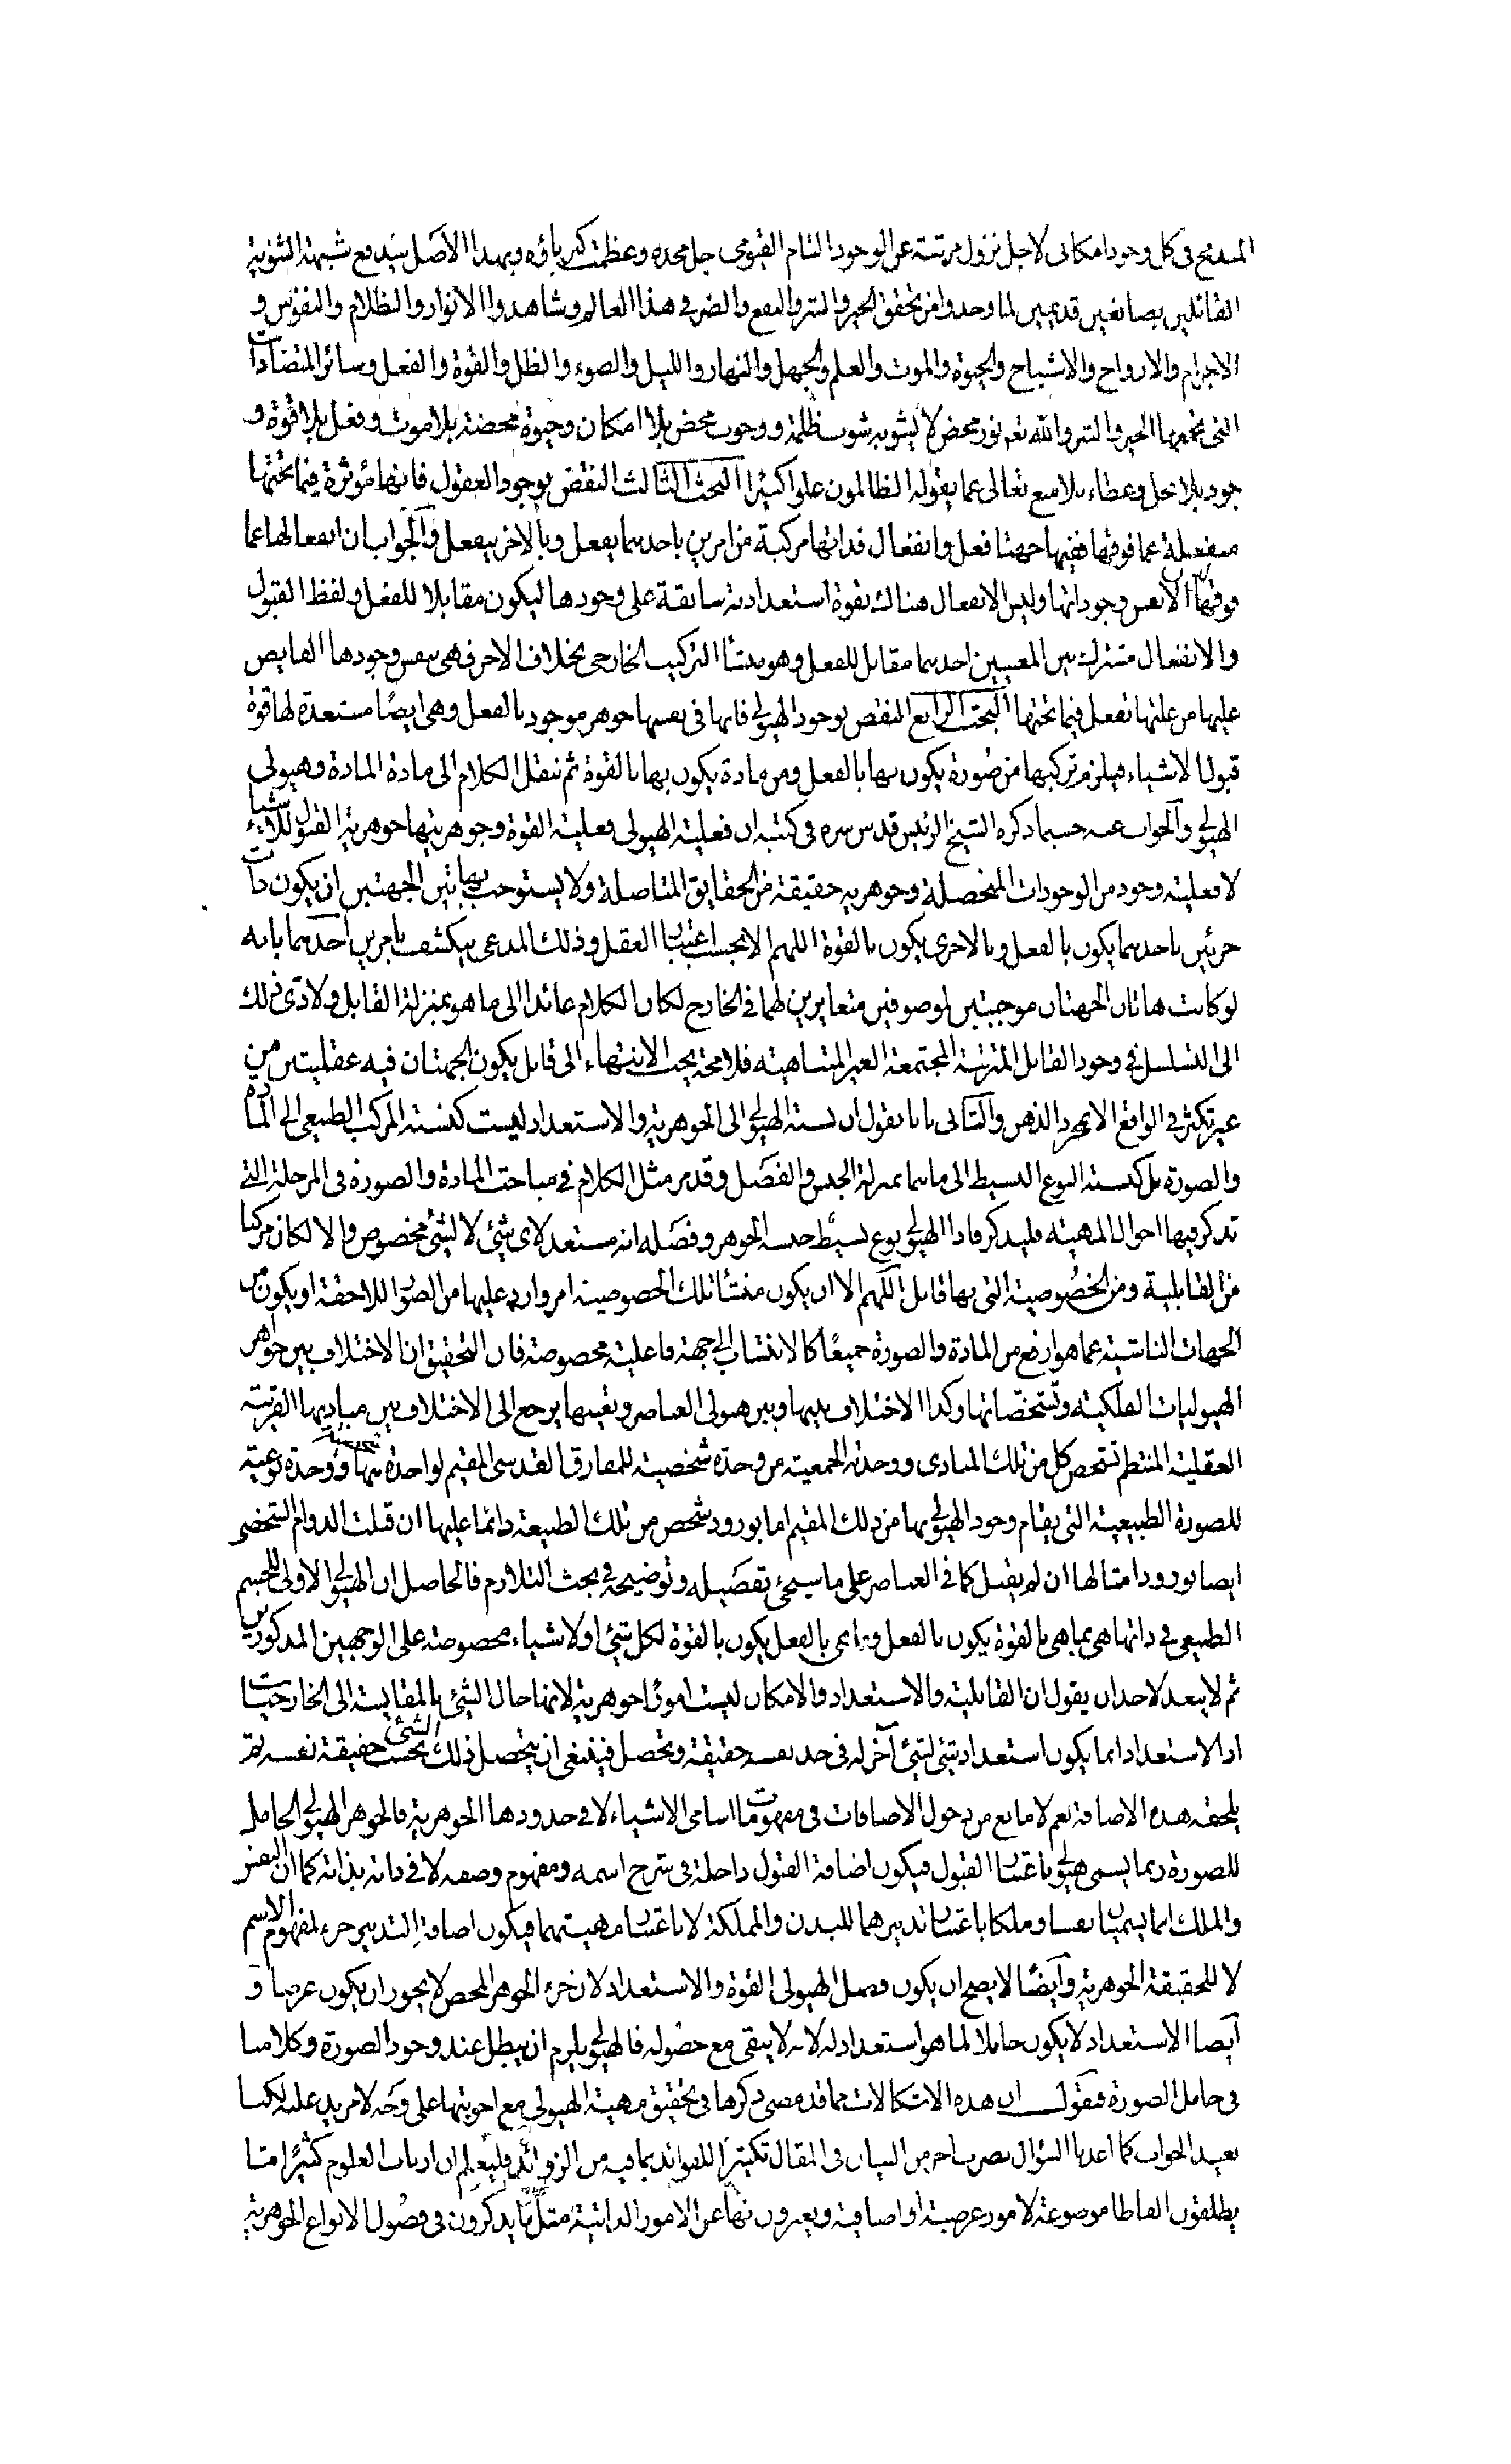 المندمج فى كل وجود امكانى لاجل نزول مرتبته عن الوجود التام القيومى جل مجده وعظمت كبرياؤه وبهذا الاصل يندفع شبهة الثنوية
القائلين بصانعين قديمين لما وجدوا من تحقق الخير والشر والنفع والضر فى هذا العالم وشاهدوا الانوار والظلام والنفوس و
الاجرام والارواح والاشباح والحيوة والموت والعلم والجهل والنهار والليل والضوء والظل والقوة والفعل وسائر المتضادات
التى يجمعها الخير والشر والله تعم نور محض لا يشوبه شوب ظلمة ووجوب محض بلا امكان وحيوة محضة بلا موت وفعل بلا قوة و
جود بلا بخل وعطاء بلا منع تعالى عما يقوله الظالمون علوا كبيرا البحث الثالث النقض بوجود العقول فانها مؤثرة فيما تحتها
منفعلة عما فوقها ففيها جهتا فعل وانفعال فذاتها مركبة من امرين باحدهما يفعل وبالاخر ينفعل والجواب ان انفعالها عما
فوقها ليس الا نفس وجوداتها وليس الانفعال هناك بقوة استعدادية سابقة على وجودها ليكون مقابلا للفعل ولفظ القبول
والانفعال مشترك بين المعنيين احدهما مقابل للفعل وهو منشأ التركيب الخارجى بخلاف الاخر فهى بنفس وجودها الفايض
عليها من علتها تفعل فيما تحتها البحث الرابع النقض بوجود الهيولى فانها فى نفسها جوهر موجود بالفعل وهى ايضا مستعدة لها قوة
قبول الاشياء فيلزم تركبها من صورة يكون بها بالفعل ومن مادة يكون بها بالقوة ثم ننقل الكلام الى مادة المادة وهيولى
الهيولى والجواب عنه حسبما ذكره الشيخ الرئيس قدس سره فى كتبه ان فعلية الهيولى فعلية القوة وجوهريتها جوهرية القبول للاشياء
لا فعلية وجود من الوجودات المتحصلة وجوهرية حقيقة من الحقايق المتاصلة ولا يستوجب بهاتين الجهتين ان يكون ذات
جزئين باحدهما يكون بالفعل وبالاخرى يكون بالقوة اللهم الا بحسب اعتبار العقل وذلك المدعى ينكشف بامرين احدهما بانه
لو كانت هاتان الجهتان موجبتين لموصوفين متغايرين لهما فى الخارج لكان الكلام عائدا الى ما هو بمنزلة القابل ولادى ذلك
الى التسلسل فى وجود القابل المترتبة المجتمعة الغير المتناهية فلا محة يجب الانتهاء الى قابل يكون الجهتان فيه عقليتين من
غير تكثر فى الواقع الا بمجرد الذهن والثانى بانا نقول ان نسبة الهيولى الى الجوهرية والاستعداد ليست كنسبة المركب الطبيعى الى المادة
والصورة بل كنسبة النوع البسيط الى ما هما بمنزلة الجنس والفصل وقد مر مثل الكلام فى مباحث المادة والصورة فى المرحلة التى
تذكر فيها احوال المهية فليتذكر فاذا الهيولى نوع بسيط جنسه الجوهر وفصله انه مستعد لاى شئ لا لشئ مخصوص والا لكان مركبا
من القابلية ومن الخصوصية التى بها قابل اللهم الا ان يكون منشأ تلك الخصوصية امر وارد عليها من الصور اللاحقة او يكون من
الجهات الناشية عما هو ارفع من المادة والصورة جميعا كالانتساب الى جهة فاعلية مخصوصة فان التحقيق ان الاختلاف بين جواهر
الهيوليات الفلكية وتشخصاتها وكذا الاختلاف بينها وبين هيولى العناصر وتعينها يرجع الى الاختلاف بين مباديها القريبة
العقلية المنتظم تشخص كل من تلك المبادى ووحدته الجمعية من وحدة شخصية للمفارق القدسى المقيم لواحدة منها ووحدة نوعية
للصورة الطبيعية التى يقام وجود الهيولى بها من ذلك المقيم اما بورود شخص من تلك الطبيعة دائما عليها ان قبلت الدوام الشخصى
ايضا بورود امثالها ان لم يقبل كما فى العناصر على ما سيجئ تفصيله وتوضيحه فى بحث التلازم فالحاصل ان الهيولى الاولى للجسم
الطبيعى فى ذاتها هى بما هى بالقوة يكون بالفعل وبما هى بالفعل يكون بالقوة لكل شئ او لاشياء مخصوصة على الوجهين المذكورين
ثم لا يبعد لاحد ان يقول ان القابلية والاستعداد والامكان ليست امورا جوهرية لانها حال الشئ بالمقايسة الى الخارجيات
اذ الاستعداد انما يكون استعداد شئ لشئ آخر له فى حد نفسه حقيقة وتحصل فينبغى ان يتحصل ذلك الشئ بحسب حقيقة نفسه ثم
يلحقه هذه الاضافة نعم لا مانع من دخول الاضافات فى مفهومات اسامى الاشياء لا فى حدودها الجوهرية فالجوهر الهيولى الحامل
للصورة ربما يسمى هيولى باعتبار القبول فيكون اضافة القبول داخلة فى شرح اسمه ومفهوم وصفه لا فى ذاته بذاته كما ان النفس
والملك انما يسميان نفسا وملكا باعتبار تدبيرهما للبدن والمملكة لا باعتبار مهيتهما فيكون اضافة التدبير جزء لمفهوم الاسم
لا للحقيقة الجوهرية وايضا لا يصح ان يكون فصل الهيولى القوة والاستعداد لان جزء الجوهر المحض لا يجوز ان يكون عرضا و
ايضا الاستعداد لا يكون حاملا لما هو استعداد له لانه لا يبقى مع حصوله فالهيولى يلزم ان يبطل عند وجود الصورة وكلامنا
فى حامل الصورة فنقول ان هذه الاشكالات مما قد مضى ذكرها فى تحقيق مهية الهيولى مع اجوبتها على وجه لا مزيد عليه لكنا
نعيد الجواب كما اعدنا السؤال بضرب اخر من البيان فى المقال تكثيرا للفوائد بما فيه من الزوائد فليعلم ان ارباب العلوم كثيرا ما
يطلقون الفاظا موضوعة لامور عرضية او اضافية ويعبرون بها عن الامور الذاتية مثل ما يذكرون فى فصول الانواع الجوهرية